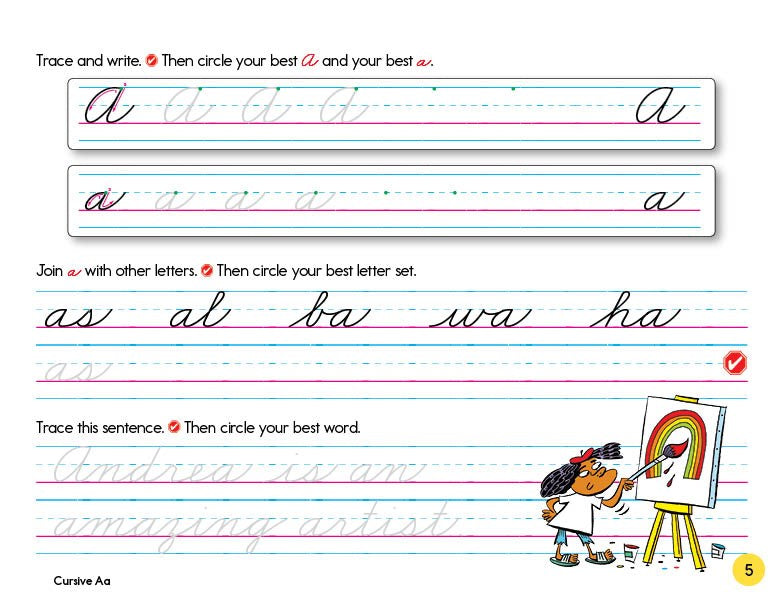 Trace and write. Then circle your best A and your best a.
A A A A A
a a a a a
Join a with other letters. Then circle your best letter set.
as al ba wa ha
as
Trace this sentence. Then circle your best word.
Andrea is an
amazing artist
Cursive Aa
5